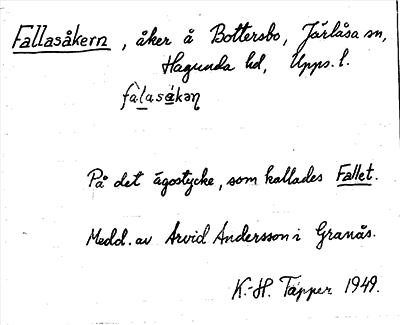 Fallasåkern, åker å Bottersbo, Järlåsa sn,
Hagunda hd, Upps. l.
fàlasákən
På det ägostycke, som kallades Fallet.
Medd. av Arvid Andersson i Granås.
K.-H. Tapper 1949.